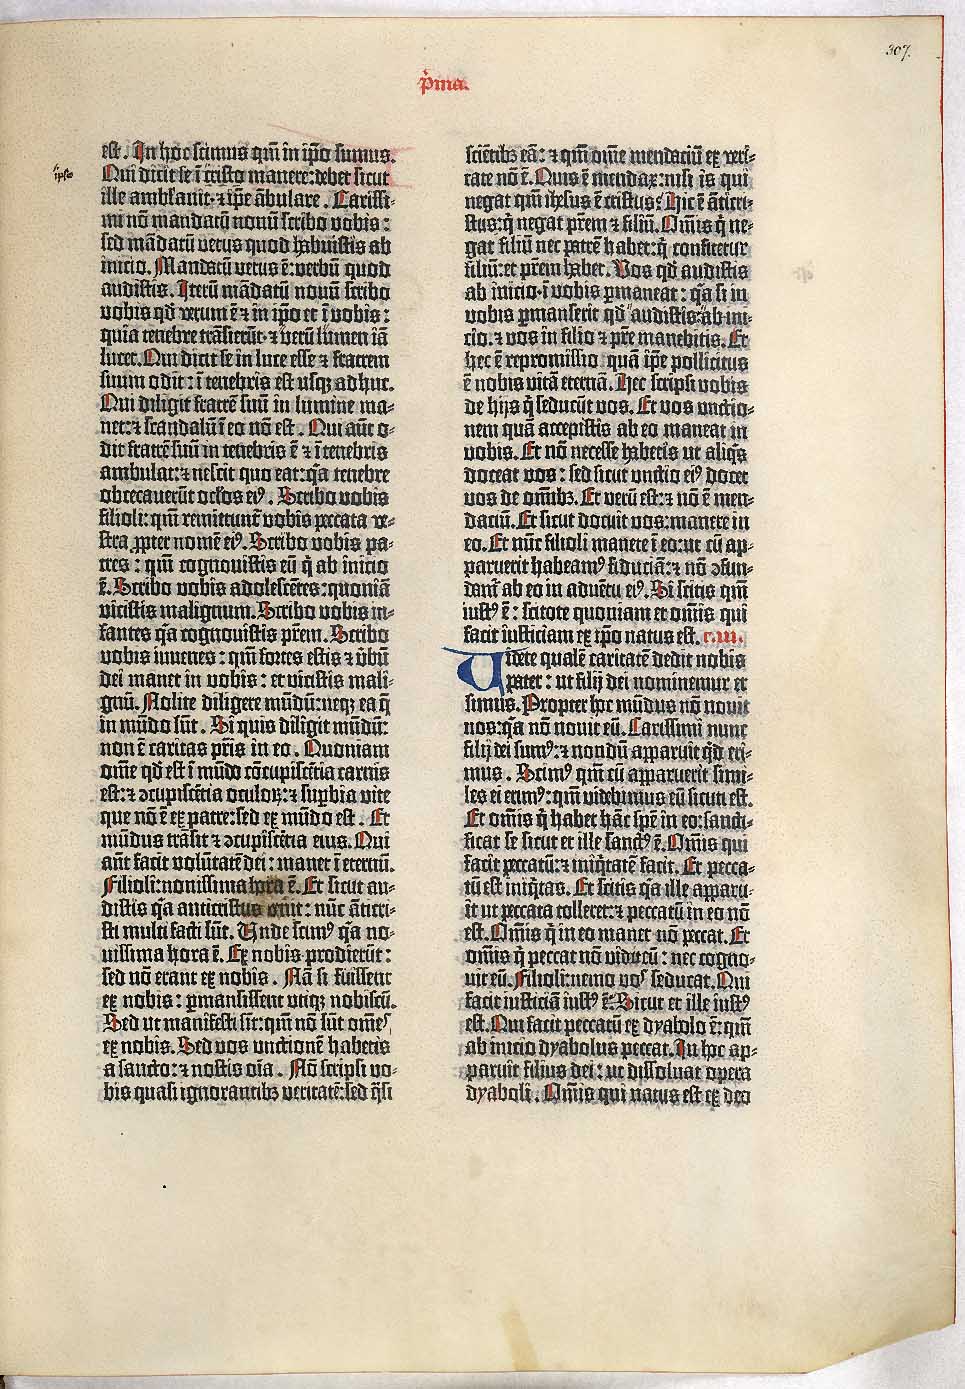 307.
p̄ma.
est. In hoc scimus qm̄ in ip̄o sumus.
Qui dicit se ī cristo manere: debet sicut
ī ipso
ille ambl̄auit· ⁊ ip̄e ābulare. Carissi-
mi nō mandatū nouū scribo vobis:
sed mādatū vetus quod habuistis ab
inicio. Mandatū vetus ē: verbū quod
audistis. Iterū mādatū nouū scribo
vobis qd̄ verum ē ⁊ in ip̄o et ī vobis:
quia tenebre trāsierūt· ⁊ verū lumen iā
lucet. Qui dicit se in luce esse ⁊ fratrem
suum odit: ī tenebris est usqꝫ adhuc.
Qui diligit fratrē suū in lumine ma-
net: ⁊ scandalū ī eo nō est. Qui aūt o-
dit fratrē suū in tenebris ē ⁊ ī tenebris
ambulat: ⁊ nescit quo eat: q̄a tenebre
obcecauerūt ocl̄os eiꝰ. Scribo vobis
filioli: qm̄ remittunt᷑ vobis peccata ve-
stra ꝓpter nomē eiꝰ. Scribo vobis pa-
tres: qm̄ cognouistis eū q̄ ab inicio
ē. Scribo vobis adolescētes: quoniā
vicistis malignum. Scribo vobis in-
fantes q̄a cognouistis pr̄em. Scribo
vobis iuuenes: qm̄ fortes estis ⁊ v̄bū
dei manet in vobis: et vicistis mali-
gnū. Nolite diligere mūdū: neqꝫ ea q̄
in mūdo sūt. Si quis diligit mūdū:
non ē caritas pr̄is in eo. Quoniam
om̄e qd̄ est ī mūdo cōcupiscētia carnis
est: ⁊ ↄcupiscētia oculoꝝ: ⁊ suꝑbia vite
que nō ē ex patre: sed ex mūdo est. Et
mūdus trāsit ⁊ ↄcupiscētia eius. Qui
aūt facit volūtatē dei: manet ī eternū.
Filioli: nouissima hora ē. Et sicut au-
distis q̄a anticristus venit: nūc āticri-
sti multi facti sūt. Vnde scimꝰ q̄a no-
uissima hora ē. Ex nobis prodierūt:
sed nō erant ex nobis. Nā si fuissent
ex nobis: ꝑmansissent vtiqꝫ nobiscū.
Sed ut manifesti sīt: qm̄ nō sūt om̄es
ex nobis. Sed vos vnctionē habetis
a sancto: ⁊ nostis oīa. Nō scripsi vo-
bis quasi ignorantibꝫ veritatē: sed q̄si
sciētibꝫ eā: ⁊ qm̄ om̄e mendaciū ex veri-
tate nō ē. Quis ē mendax: nisi is qui
negat qm̄ ihesus ē cristus? Hic ē āticri-
stus: q̄ negat pr̄em ⁊ filiū. Om̄is q̄ ne-
gat filiū nec patrē habet: q̄ confitetur
filiū: et pr̄em habet. Vos qd̄ audistis
ab inicio· ī vobis ꝑmaneat: q̄a si in
vobis ꝑmanserit qd̄ audistis ab ini-
cio· ⁊ vos in filio ⁊ pr̄e manebitis. Et
hec ē repromissio quā ip̄e pollicitus
ē nobis vitā eternā. Hec scripsi vobis
de hijs q̄ seducūt vos. Et vos vnctio-
nem quā accepistis ab eo maneat in
vobis. Et nō necesse habetis ut aliq̄s
doceat vos: sed sicut vnctio eiꝰ docet
vos de om̄ibꝫ. Et verū est: ⁊ nō ē men-
daciū. Et sicut docuit vos: manete in
eo. Et nūc filioli manete ī eo: ut cū ap-
paruerit habeamꝰ fiduciā: ⁊ nō ↄfun-
damꝛ ab eo in aduētu eiꝰ. Si scitis qm̄
iustꝰ ē: scitote quoniam et om̄is qui
facit iusticiam ex ip̄o natus est. c. iii.
Videte qualē caritatē dedit nobis
pater: ut filij dei nominemur et
simus. Propter hoc mūdus nō nouit
nos: q̄a nō nouit eū. Carissimi nunc
filij dei sumꝰ: ⁊ nondū apparuit qd̄ eri-
mus. Scimꝰ qm̄ cū apparuerit simi-
les ei erimꝰ: qm̄ videbimus eū sicuti est.
Et om̄is q̄ habet hāc spē in eo: sancti-
ficat se sicut et ille sanctꝰ ē. Om̄is qui
facit peccatū: ⁊ iniq̄tatē facit. Et pecca-
tū est iniq̄tas. Et scitis q̄a ille apparu-
it ut peccata tolleret: ⁊ peccatū in eo nō
est. Om̄is q̄ in eo manet nō peccat. Et
om̄is q̄ peccat nō vidit eū: nec cogno-
uit eū. Filioli: nemo vos seducat. Qui
facit iusticiā iustꝰ ē: Sicut et ille iustꝰ
est. Qui facit peccatū ex dyabolo ē: qm̄
ab inicio dyabolus peccat. In hoc ap-
paruit filius dei: ut dissoluat opera
dyaboli. Om̄is qui natus est ex deo